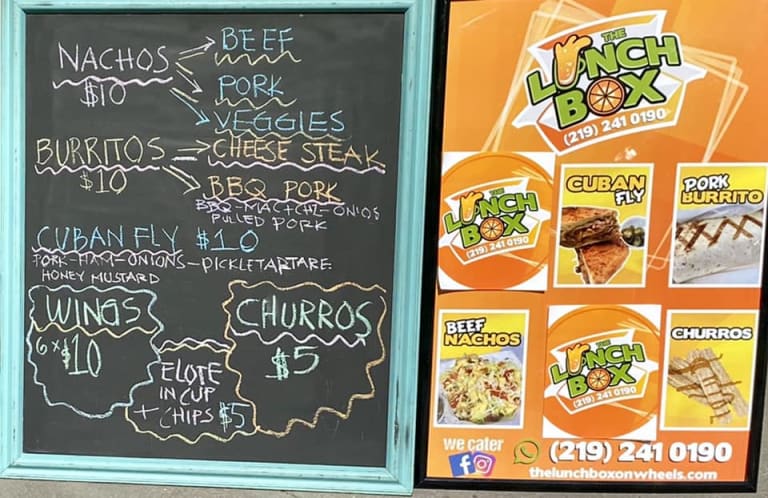 NACHOS
$10
BEEF
PORK
VEGGIES
BURRITOS
$10
CHEESE STEAK
BBQ PORK
BBQ-MAC+CHI-ONIOS
PULLED PORK
CUBAN FLY $10
PORK-HAM-ONIONS-PICKLETARTARE
HONEY MUSTARD
WINGS
6 x $10
CHURROS
$5
ELOTE
IN CUP
+ CHIPS $5
THE
LUNCH
BOX
(219) 241 0190
THE
LUNCH
BOX
(219) 241 0190
CUBAN
FLY
PORK
BURRITO
BEEF
NACHOS
THE
LUNCH
BOX
(219) 241 0190
CHURROS
we cater
(219) 241 0190
thelunchboxonwheels.com